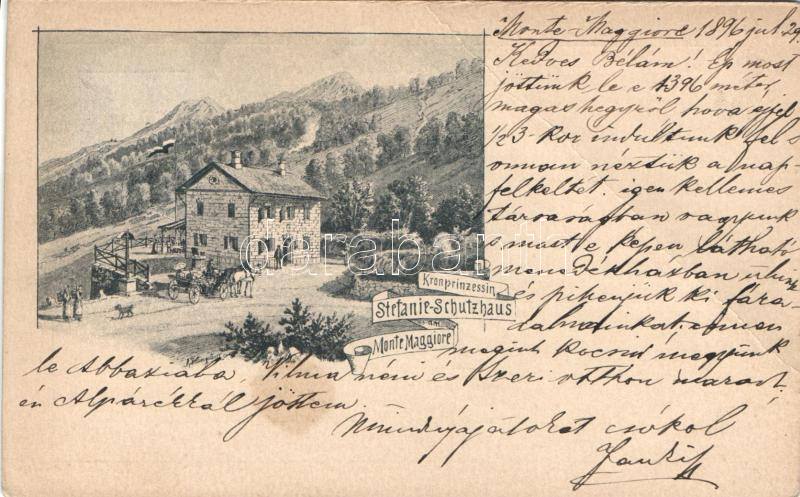 Monte Maggiore 1896 jul. 29.
Kedves Bélám! Ép most
jöttünk le e 1396 méter
magas hegyről hova éjjel
1/23-kor indultunk fel s
onnan néztük a nap-
felkeltét. igen kellemes
társaságban vagyunk
s most e képen látható
menedékházban
és pihenjük ki fára-
dalmainkat. onnan
megint kocsin megyünk
le Abbaziába, Vilma néni és Szeri otthon maradt,
én Alpárékkal jöttem.
Mindnyájatokat csókol
Kronprinzessin
Stefanie-Schutzhaus
am
Monte Maggiore
darabanth